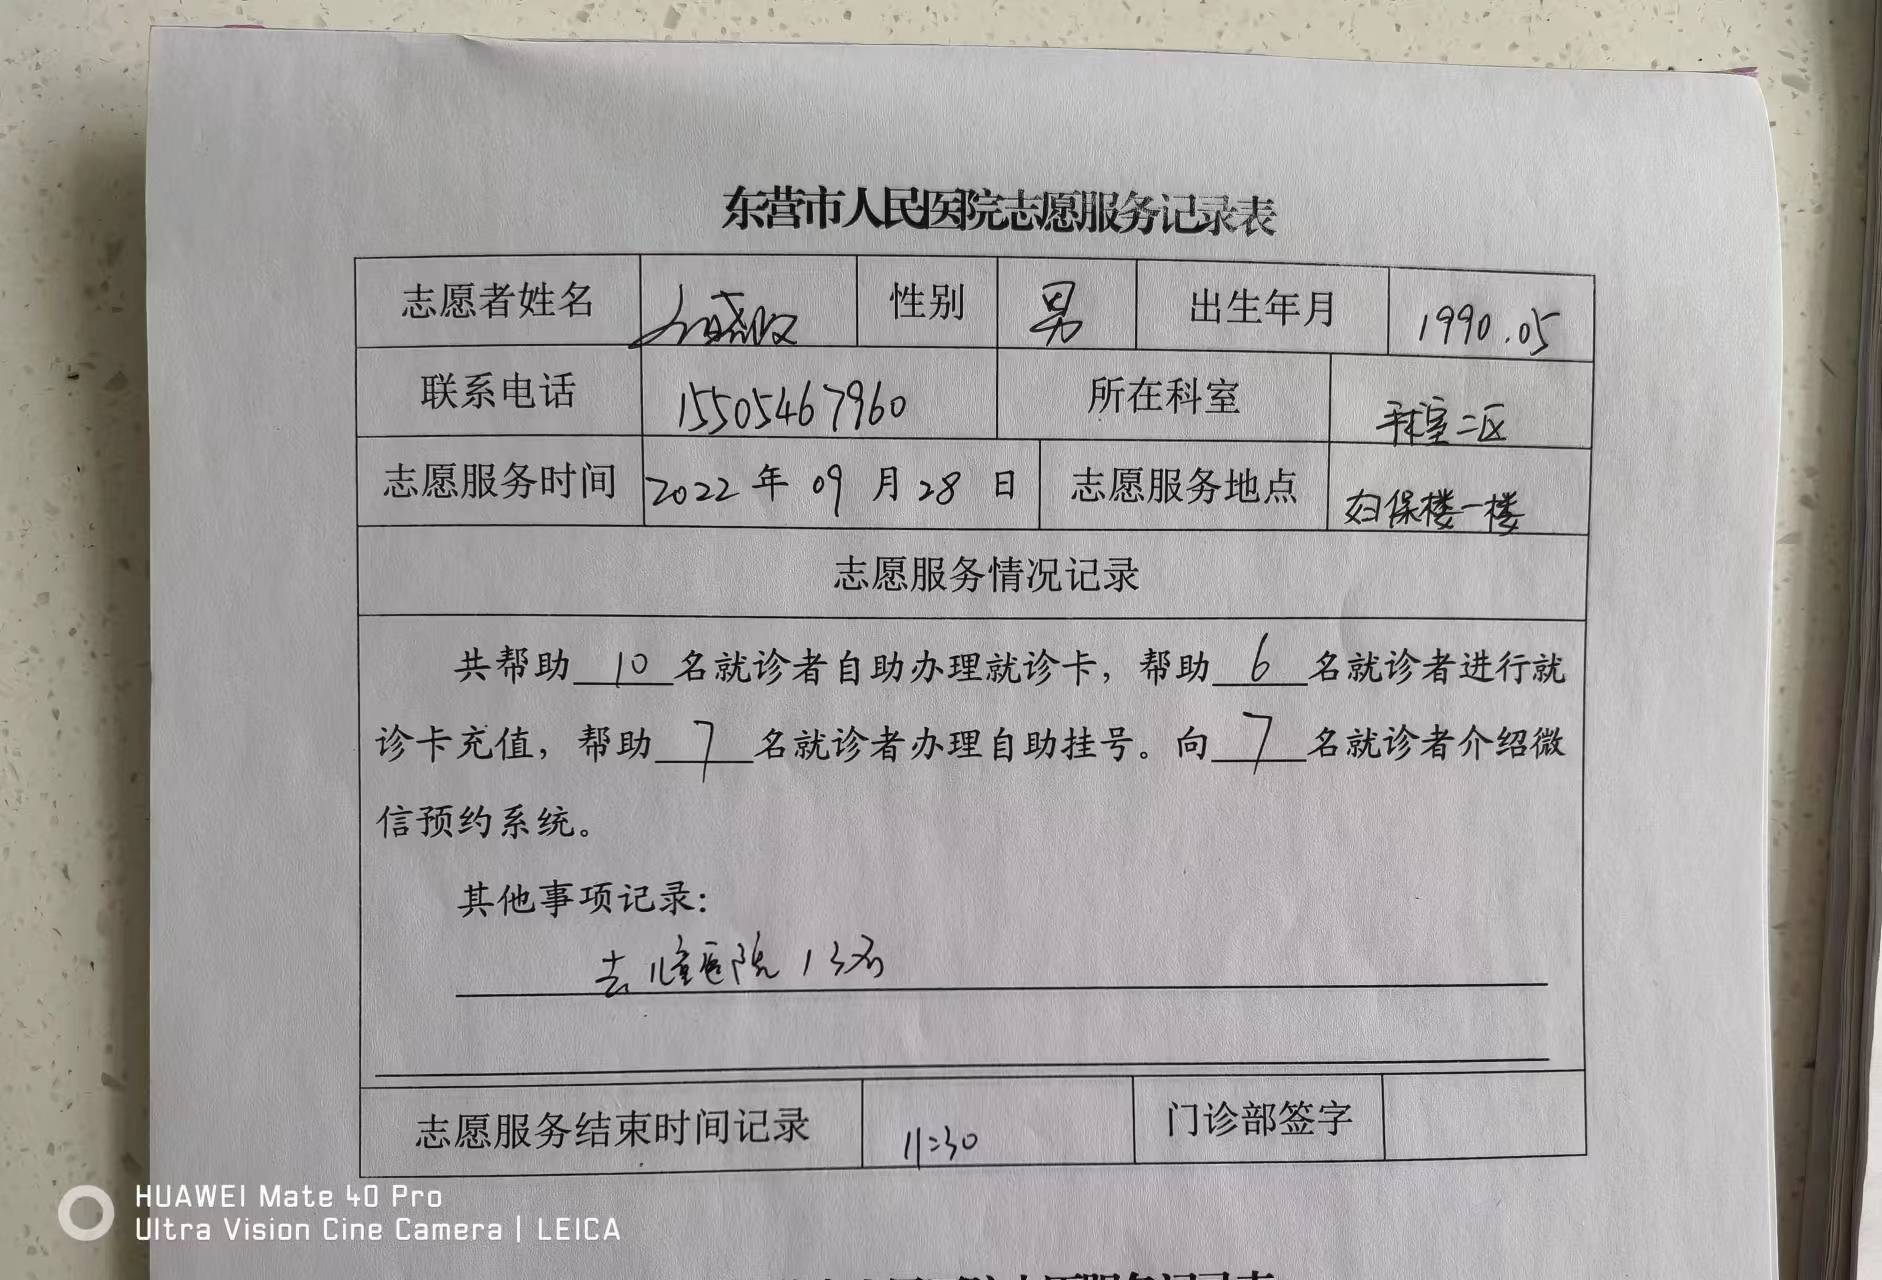 东营市人民医院志愿服务记录表
志愿者姓名 性别 男 出生年月 1990.05
联系电话 15505467960 所在科室 手术室二区
志愿服务时间 2022年09月28日 志愿服务地点 妇保楼一楼
志愿服务情况记录
共帮助 10 名就诊者自助办理就诊卡，帮助 6 名就诊者进行就
诊卡充值，帮助 7 名就诊者办理自助挂号。向 7 名就诊者介绍微
信预约系统。
其他事项记录：
去儿童医院 13名
志愿服务结束时间记录 11:30 门诊部签字
HUAWEI Mate 40 Pro
Ultra Vision Cine Camera | LEICA